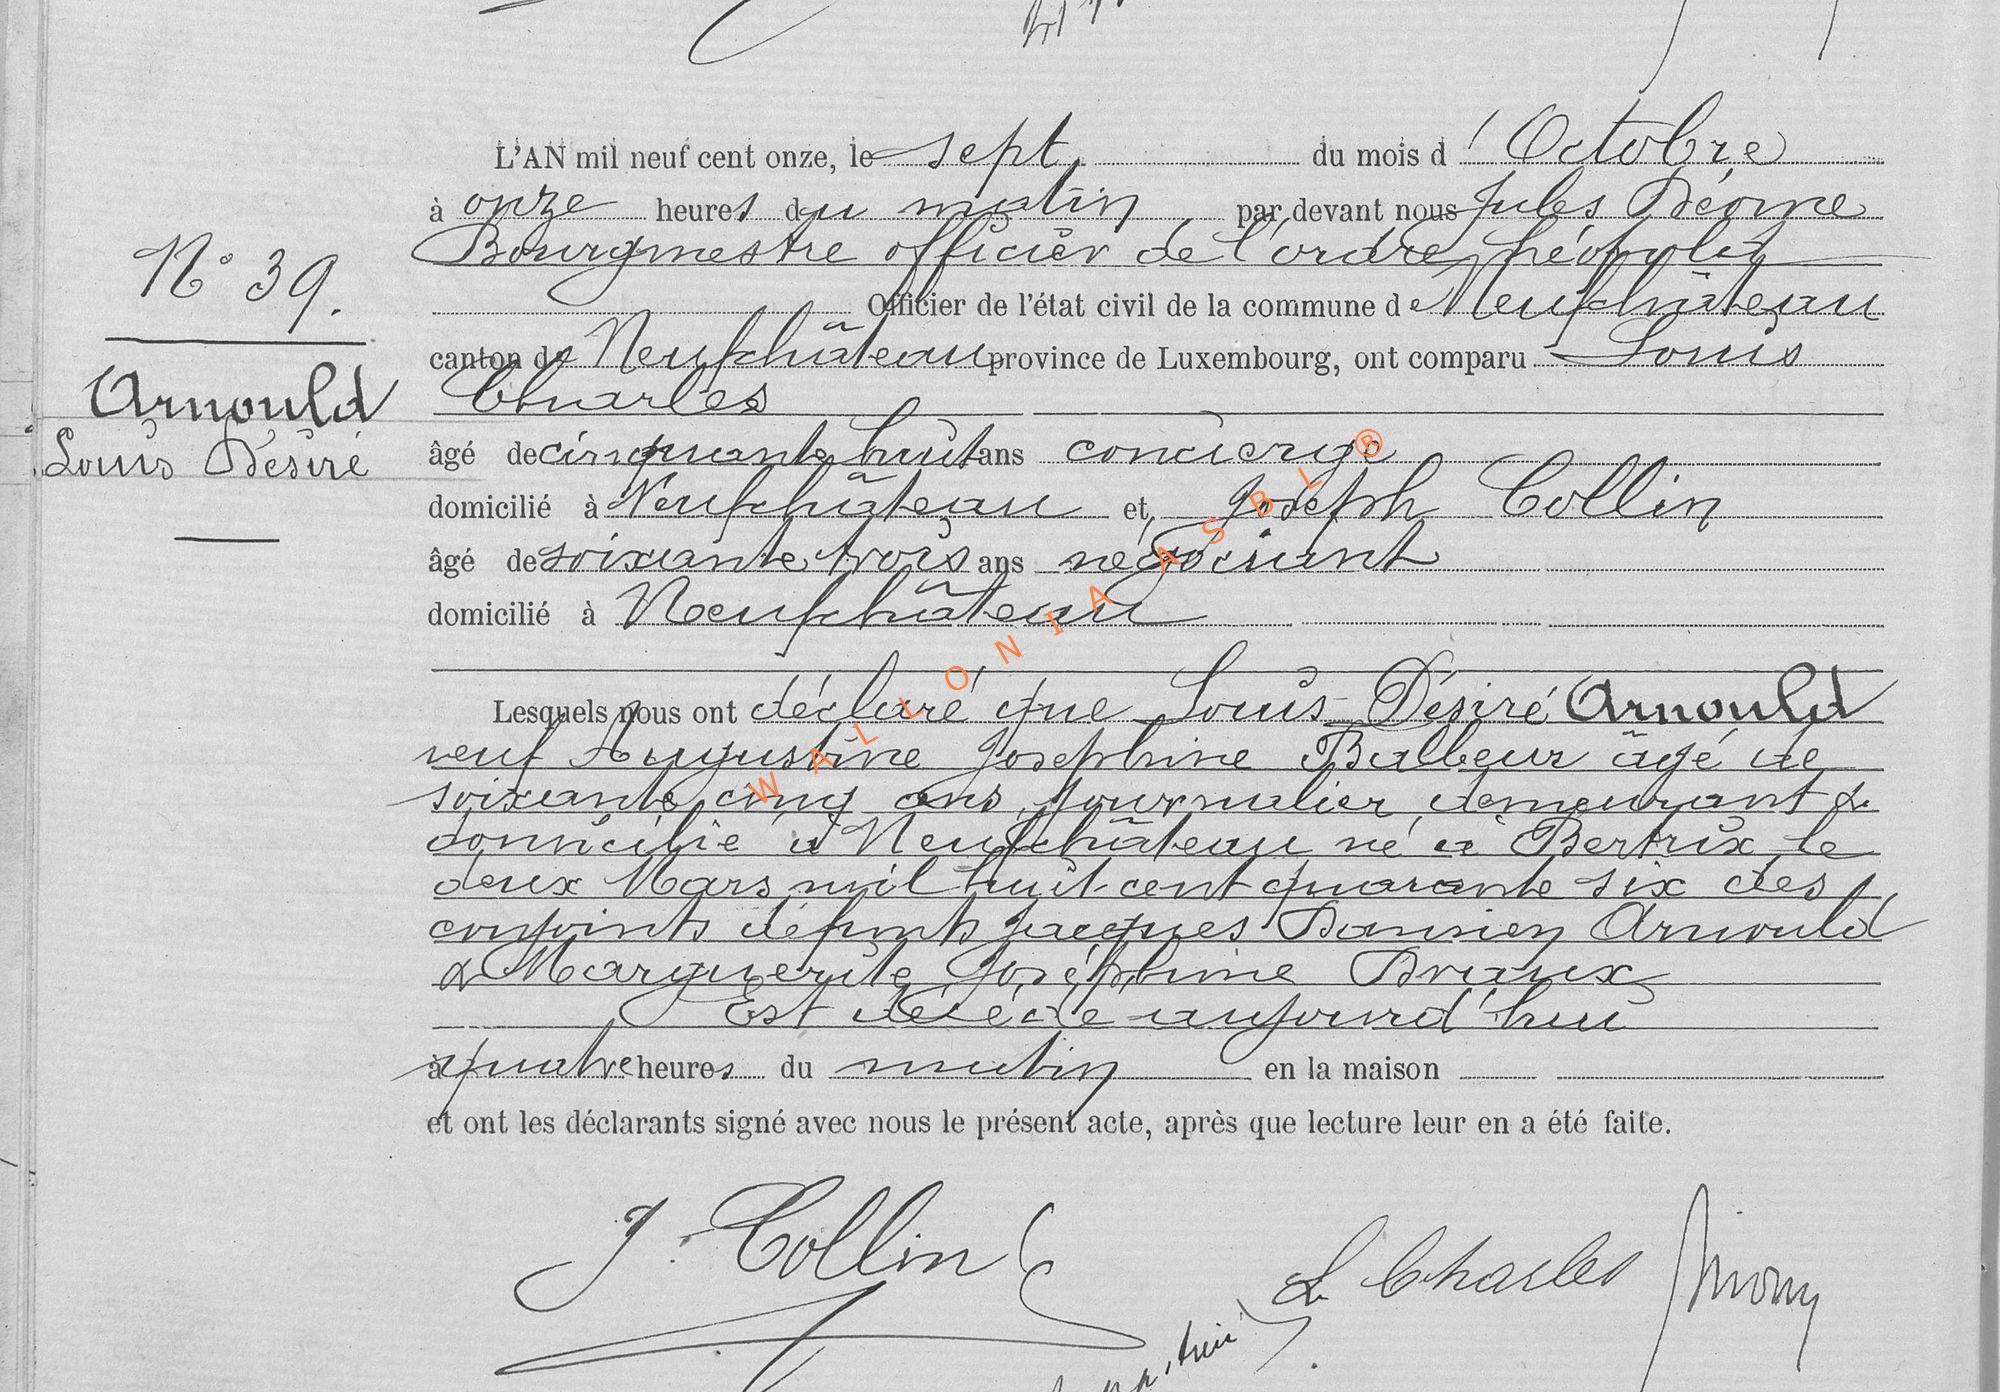 L'AN mil neuf cent onze, le sept du mois d'Octobre
à onze heures du matin par devant nous Jules
Bourgmestre officier de l'ordre Léopold
Officier de l'état civil de la commune de Neufchâteau
N° 39.
canton de Neufchâteau province de Luxembourg, ont comparu Louis
Charles
Arnould
Louis Désiré
âgé de cinquante huit ans concierge
domicilié à Neufchâteau et Joseph Collin
âgé de soixante trois ans négociant
domicilié à Neufchâteau
Lesquels nous ont déclaré que Louis Désiré Arnould
veuf Augustine Joséphine Balbeur âgé de
soixante cinq ans, journalier, demeurant &
domicilié à Neufchâteau né à Bertrix le
deux Mars mil huit cent quarante six des
conjoints défunts Jacques Arnould
& Marguerite Joséphine
Est décédé aujourd'hui
à quatre heures du matin en la maison
et ont les déclarants signé avec nous le présent acte, après que lecture leur en a été faite.
J. Collin
L Charles
WALLONIA ASBL ®